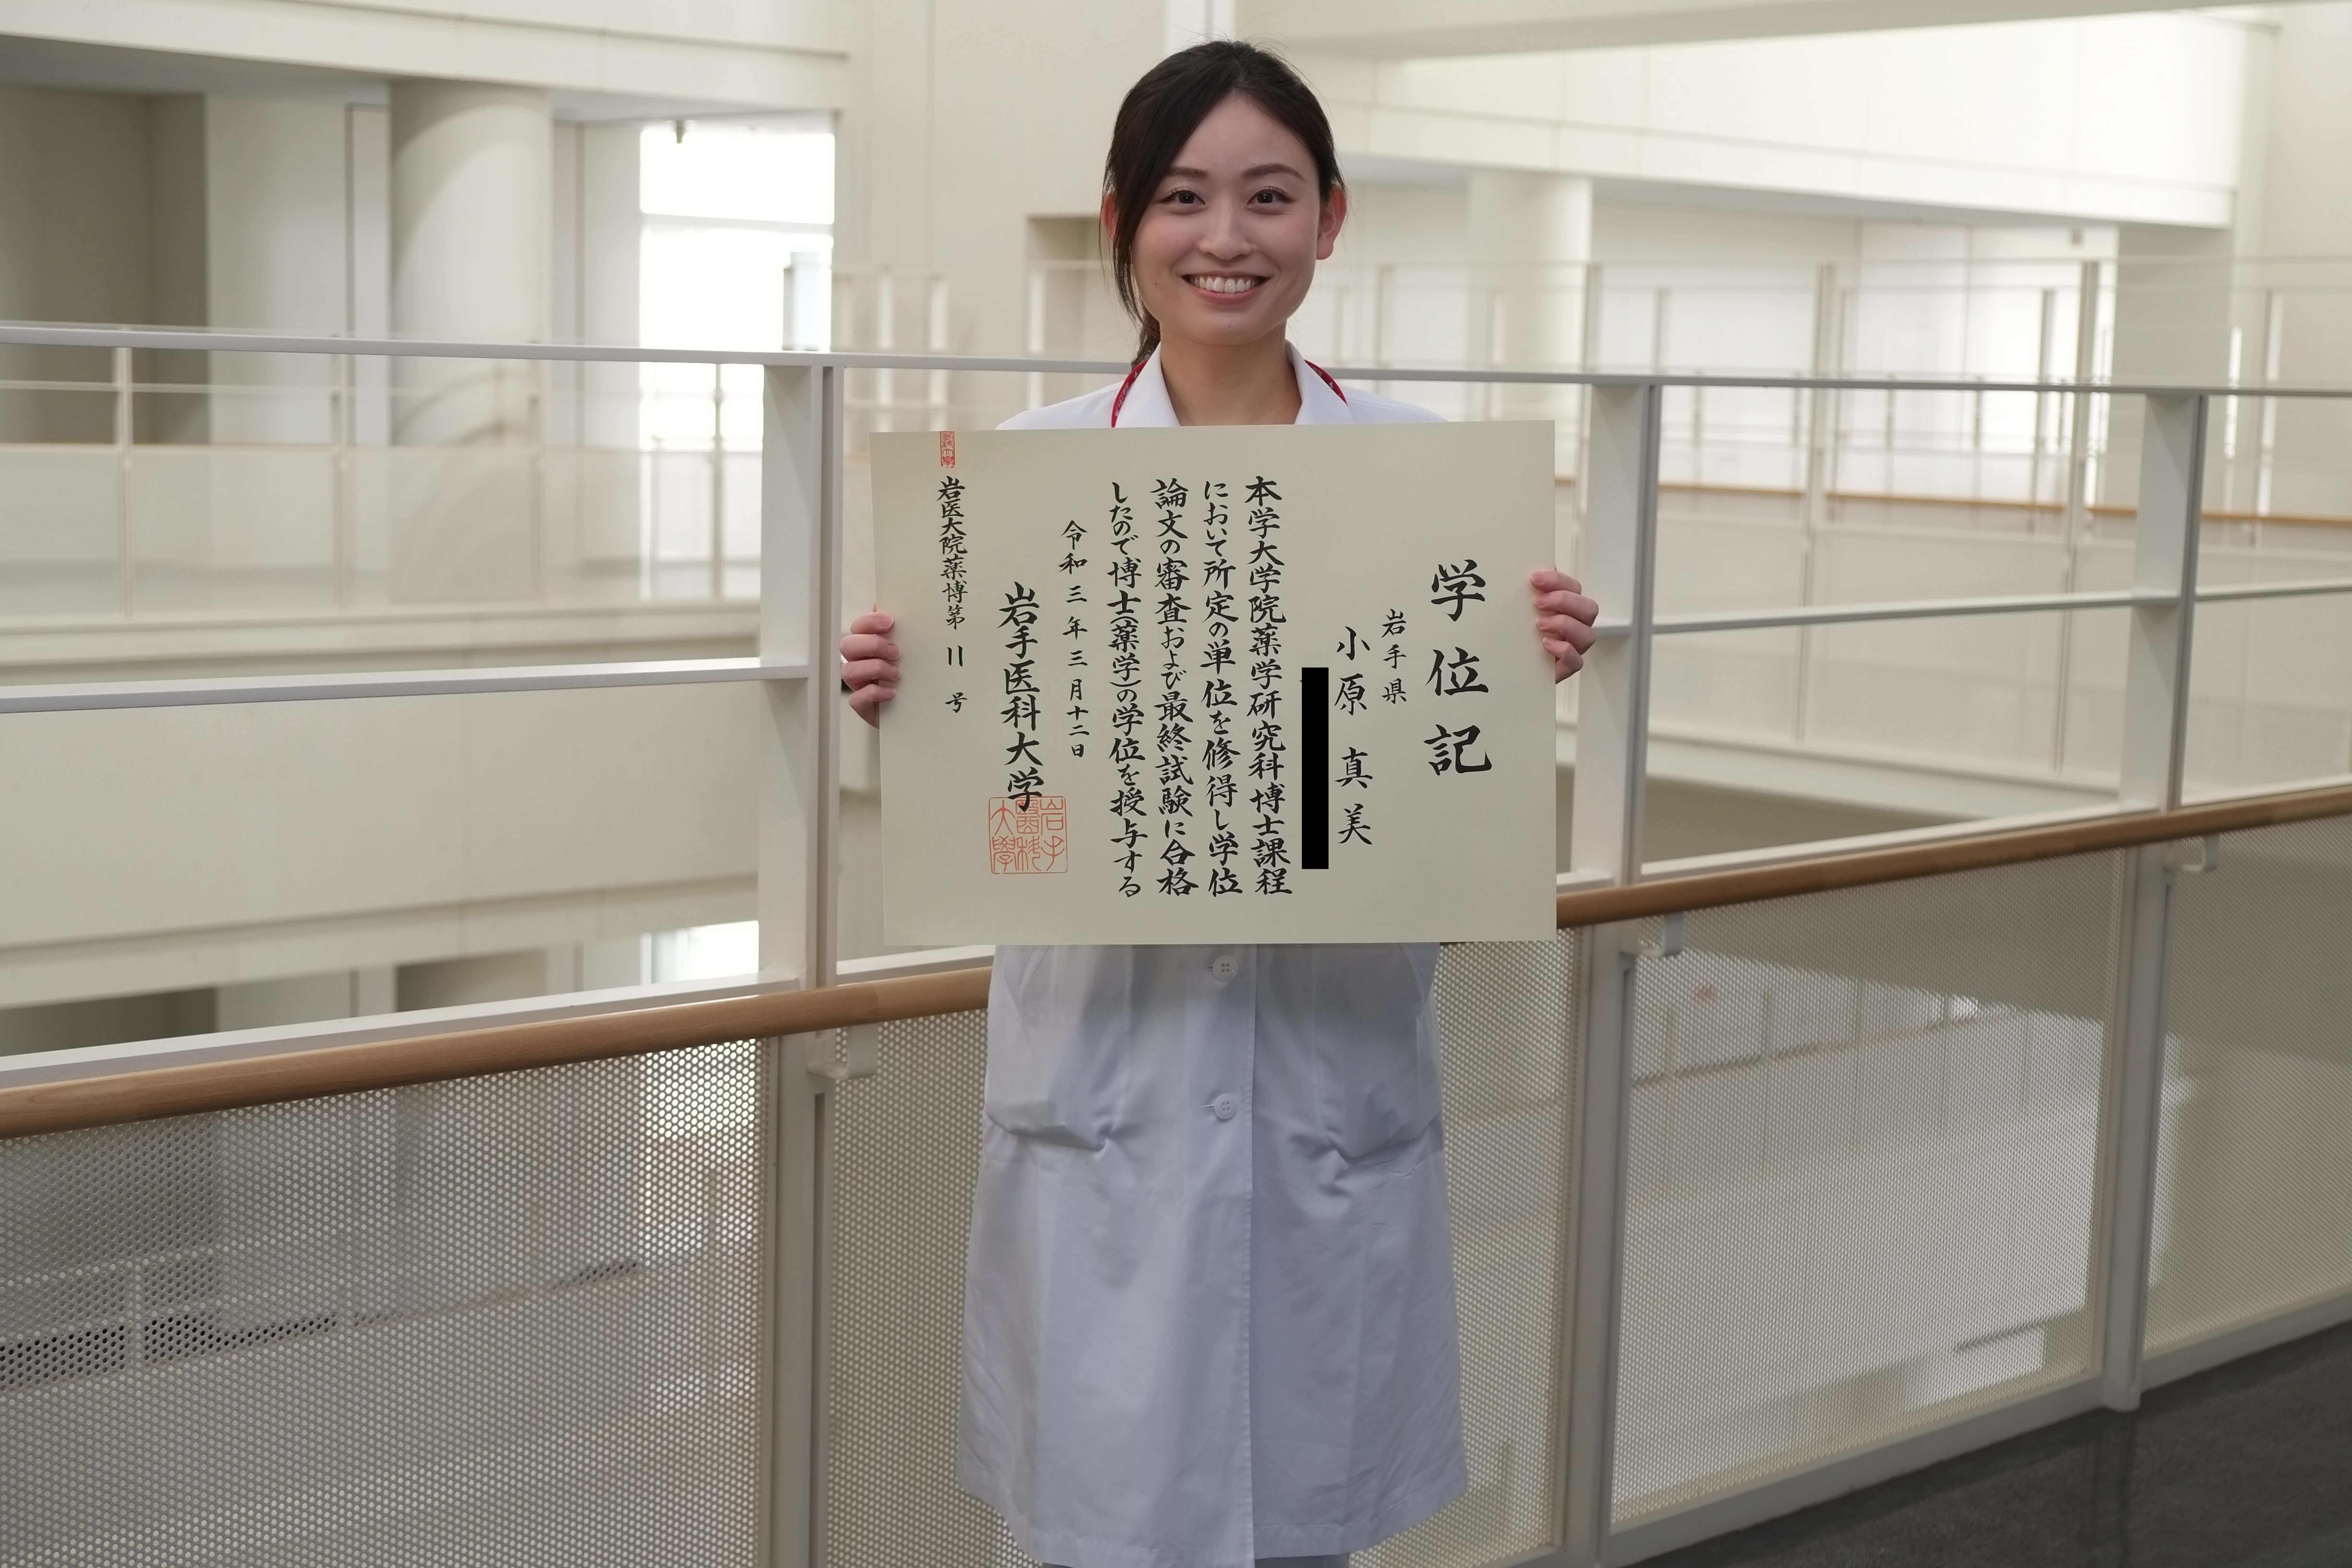 学位記
岩手県
小原 真美
本学大学院薬学研究科博士課程
において所定の単位を修得し学位
論文の審査および最終試験に合格
したので博士(薬学)の学位を授与する
令和三年三月十二日
岩手医科大学
岩手醫科大學
岩医大院薬博第 11 号